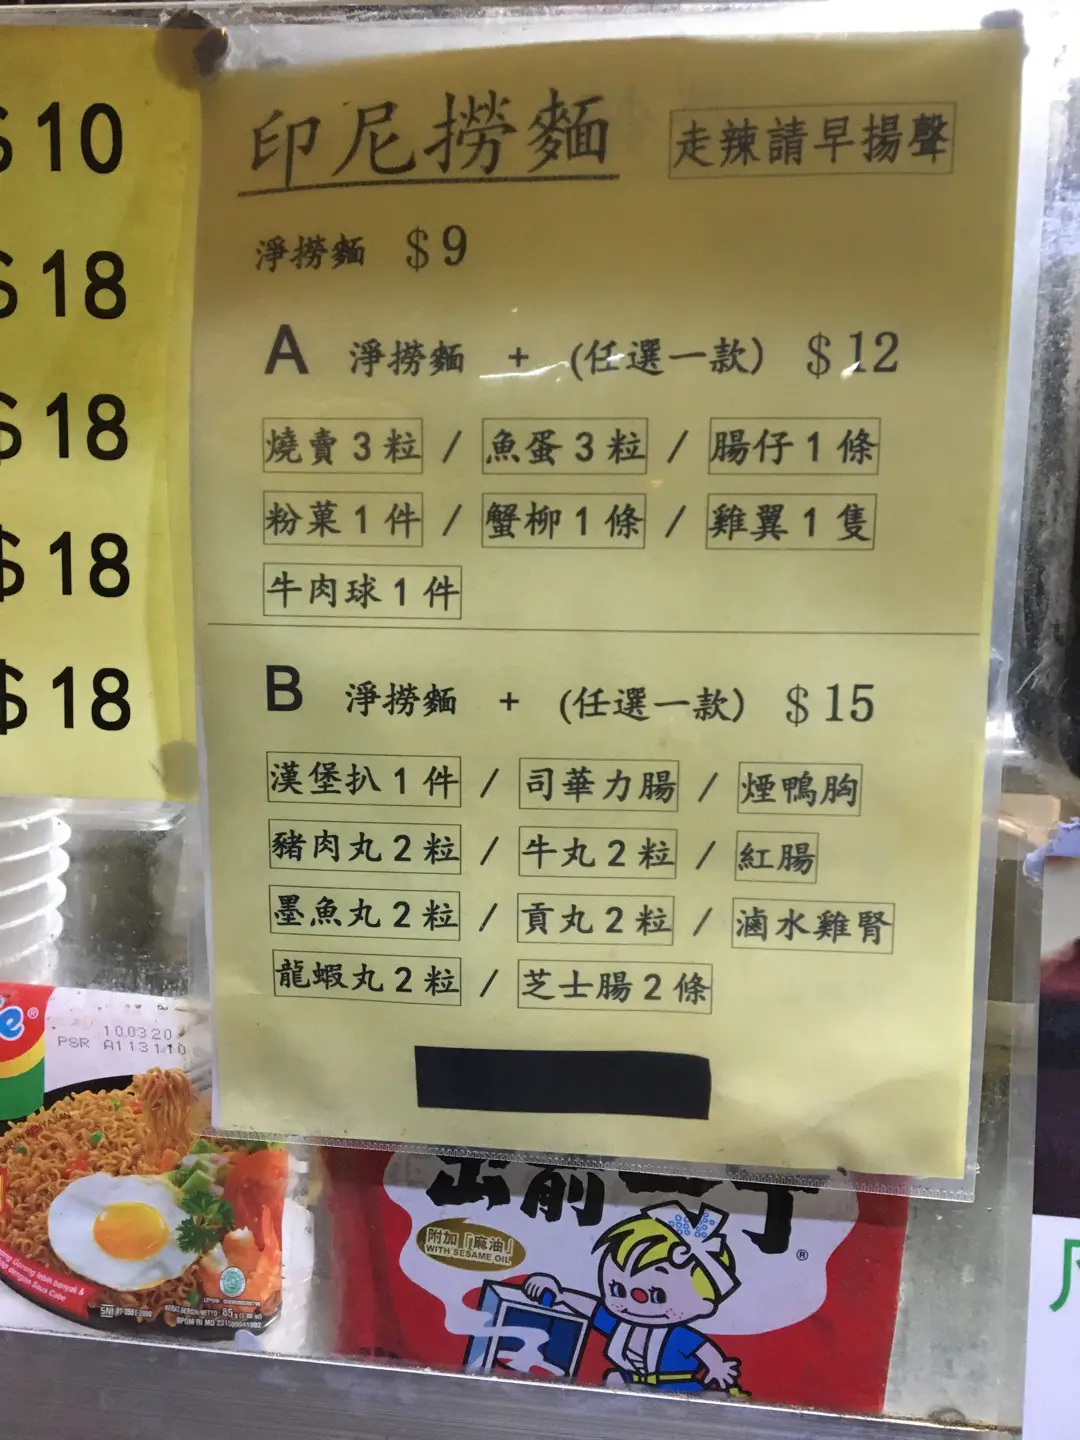 $10
$18
$18
$18
$18
印尼撈麵 走辣請早揚聲
淨撈麵 $9
A 淨撈麵 + (任選一款) $12
燒賣3粒 / 魚蛋3粒 / 腸仔1條
粉菓1件 / 蟹柳1條 / 雞翼1隻
牛肉球1件
B 淨撈麵 + (任選一款) $15
漢堡扒1件 / 司華力腸 / 煙鴨胸
豬肉丸2粒 / 牛丸2粒 / 紅腸
墨魚丸2粒 / 貢丸2粒 / 滷水雞腎
龍蝦丸2粒 / 芝士腸2條
e®
10.03.20
PSR A113110
出前一丁®
附加「麻油」
WITH SESAME OIL